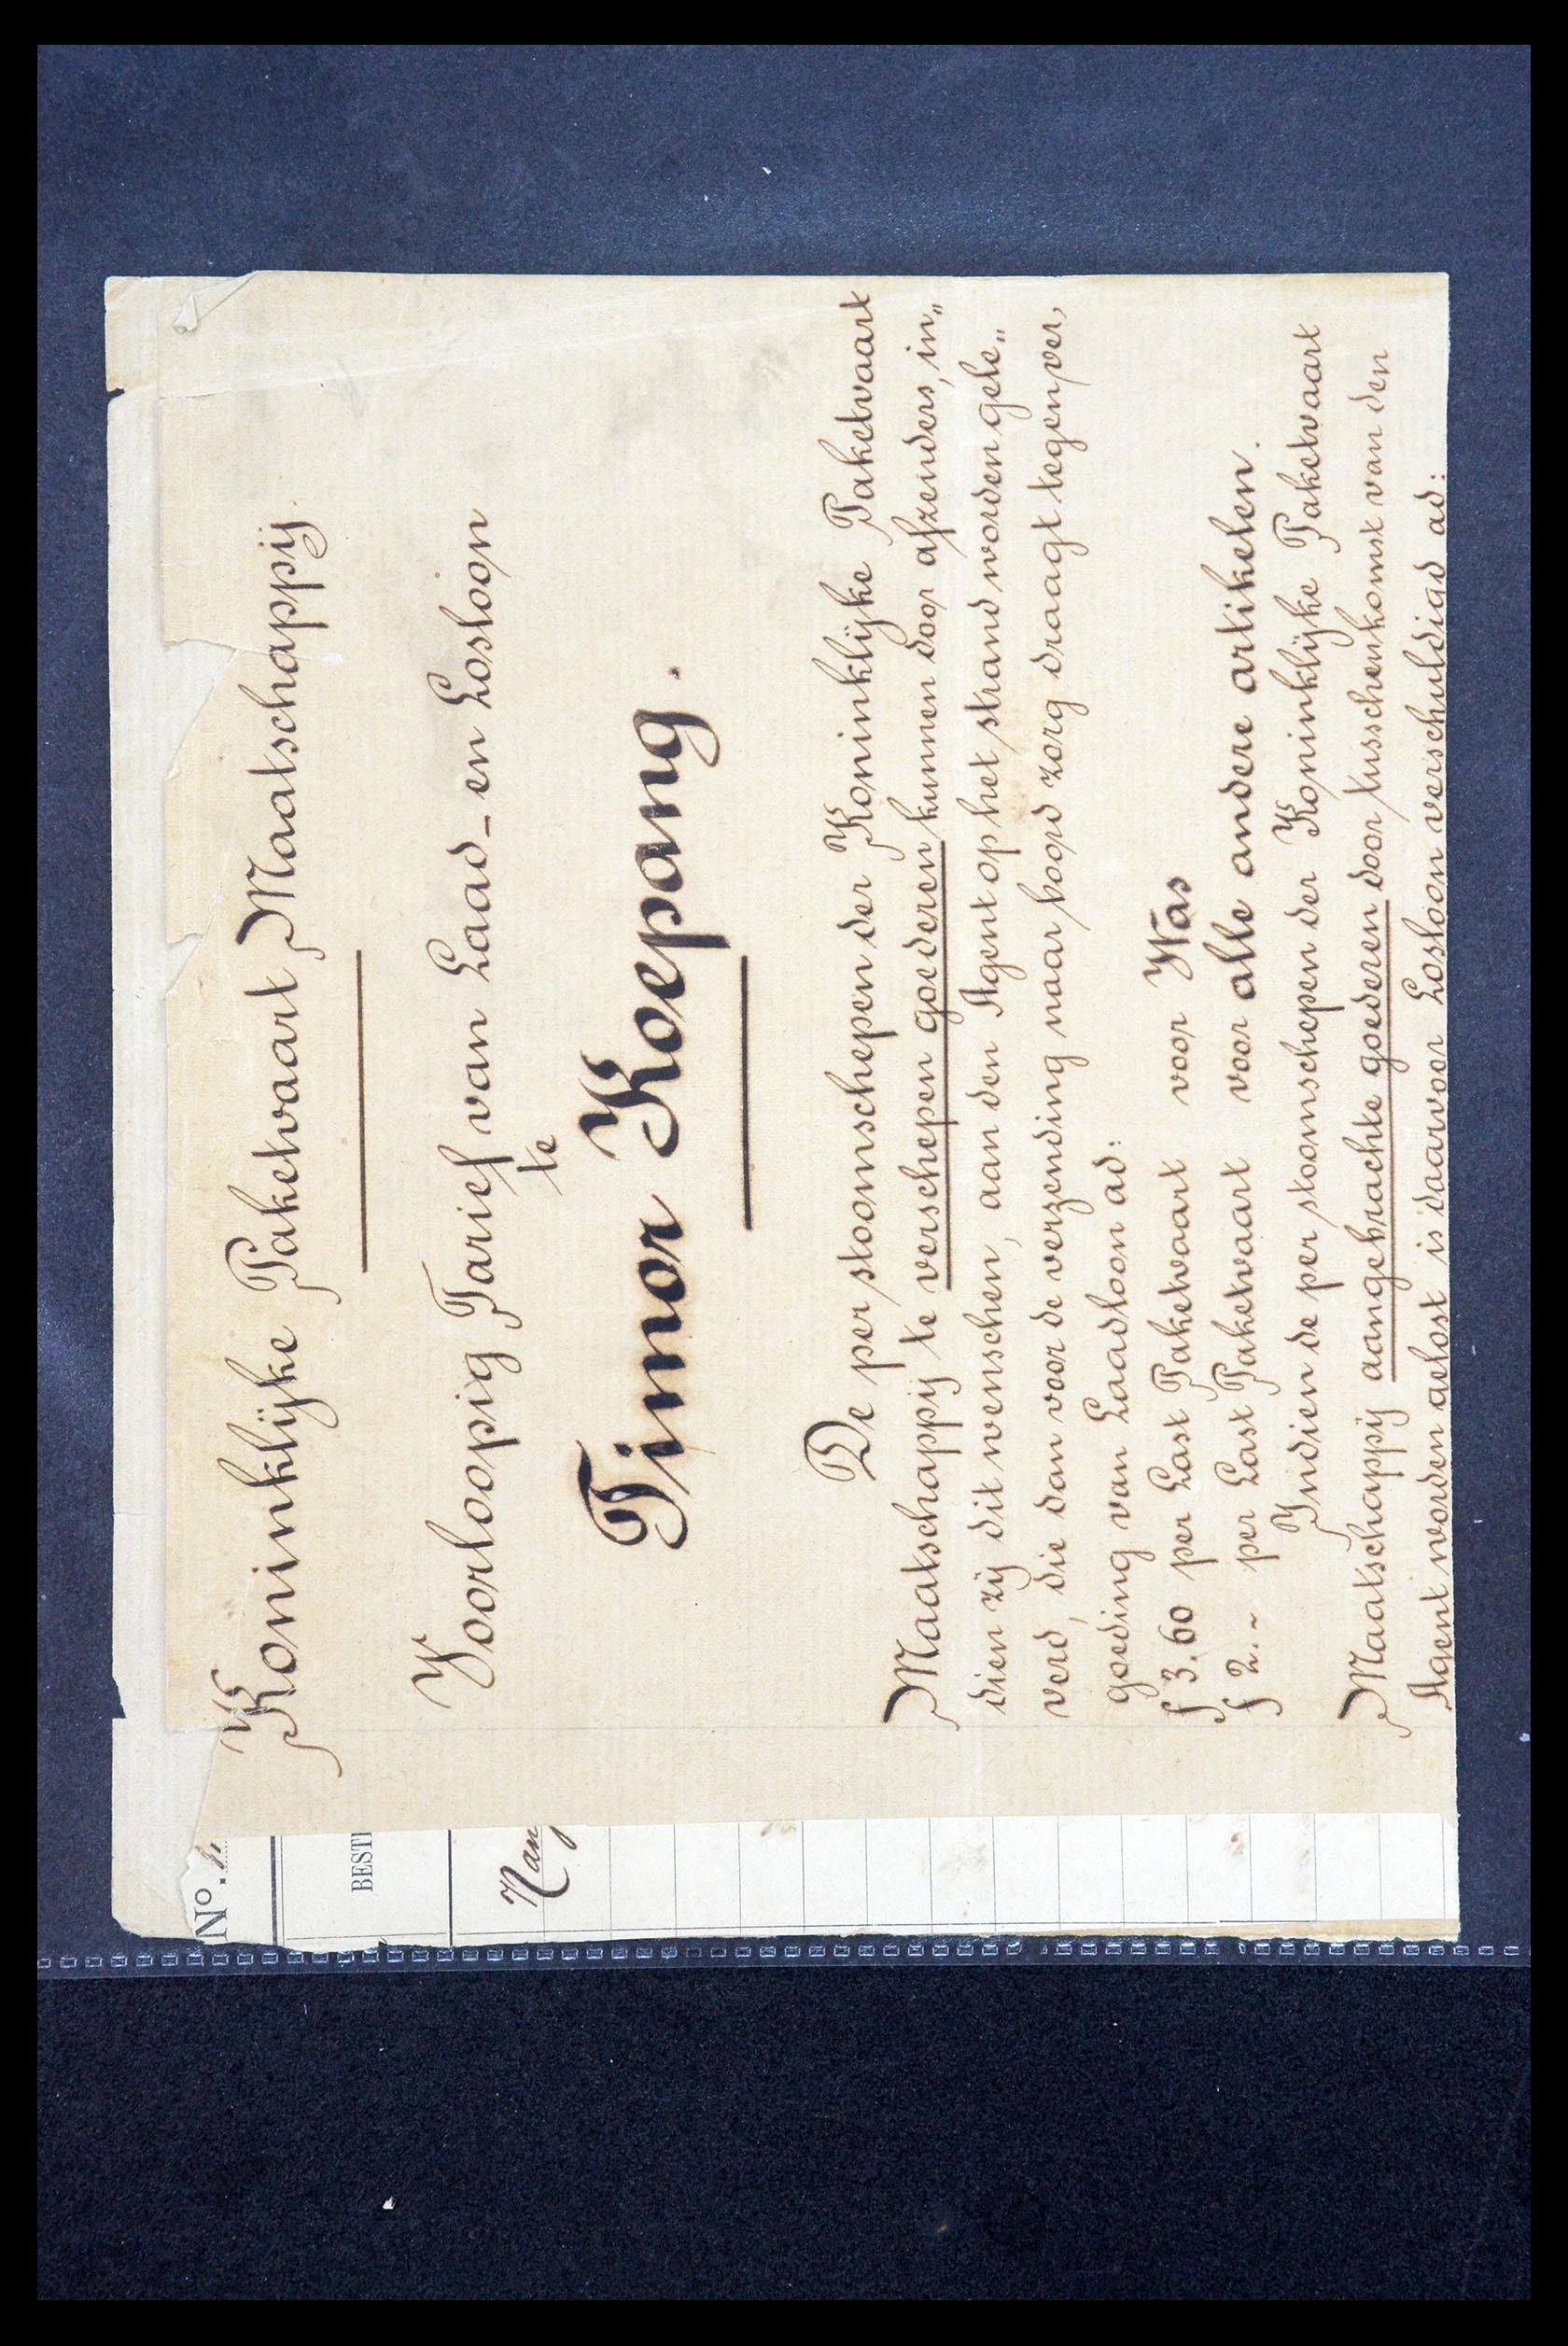 Koninklijke Paketvaart Maatschappij
Voorloopig Tarief van Laad- en Losloon
te
Timor Koepang.
De per stoomschepen der Koninklijke Paketvaart
Maatschappij te verschepen goederen kunnen door afzenders, in„
dien zij dit wenschen, aan den Agent op het strand worden gele„
verd, die dan voor de verzending naar boord zorg draagt tegen ver„
goeding van Laadloon ad:
f 3.60 per Last Paketvaart voor Was
f 2.- per Last Paketvaart voor alle andere artikelen.
Indien de per stoomschepen der Koninklijke Paketvaart
Maatschappij aangebrachte goederen door tusschenkomst van den
Agent worden gelost is daarvoor Losloon verschuldigd ad:
No.
BESTE
Nan